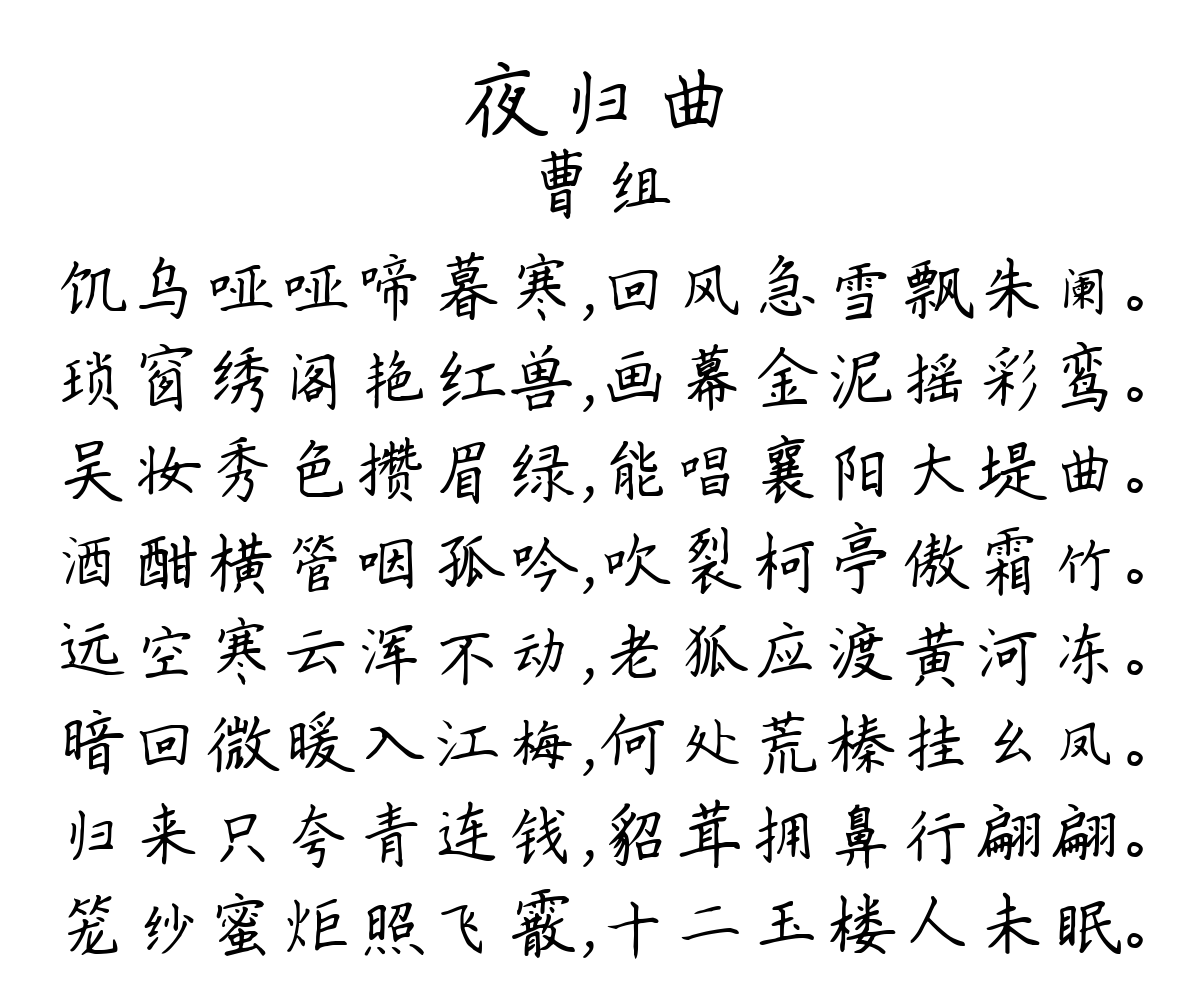 夜归曲
曹组
饥乌哑哑啼暮寒,回风急雪飘朱阑。
琐窗绣阁艳红兽,画幕金泥摇彩鸾。
吴妆秀色攒眉绿,能唱襄阳大堤曲。
酒酣横管咽孤吟,吹裂柯亭傲霜竹。
远空寒云浑不动,老狐应渡黄河冻。
暗回微暖入江梅,何处荒榛挂幺凤。
归来只夸青连钱,貂茸拥鼻行翩翩。
笼纱蜜炬照飞霰,十二玉楼人未眠。